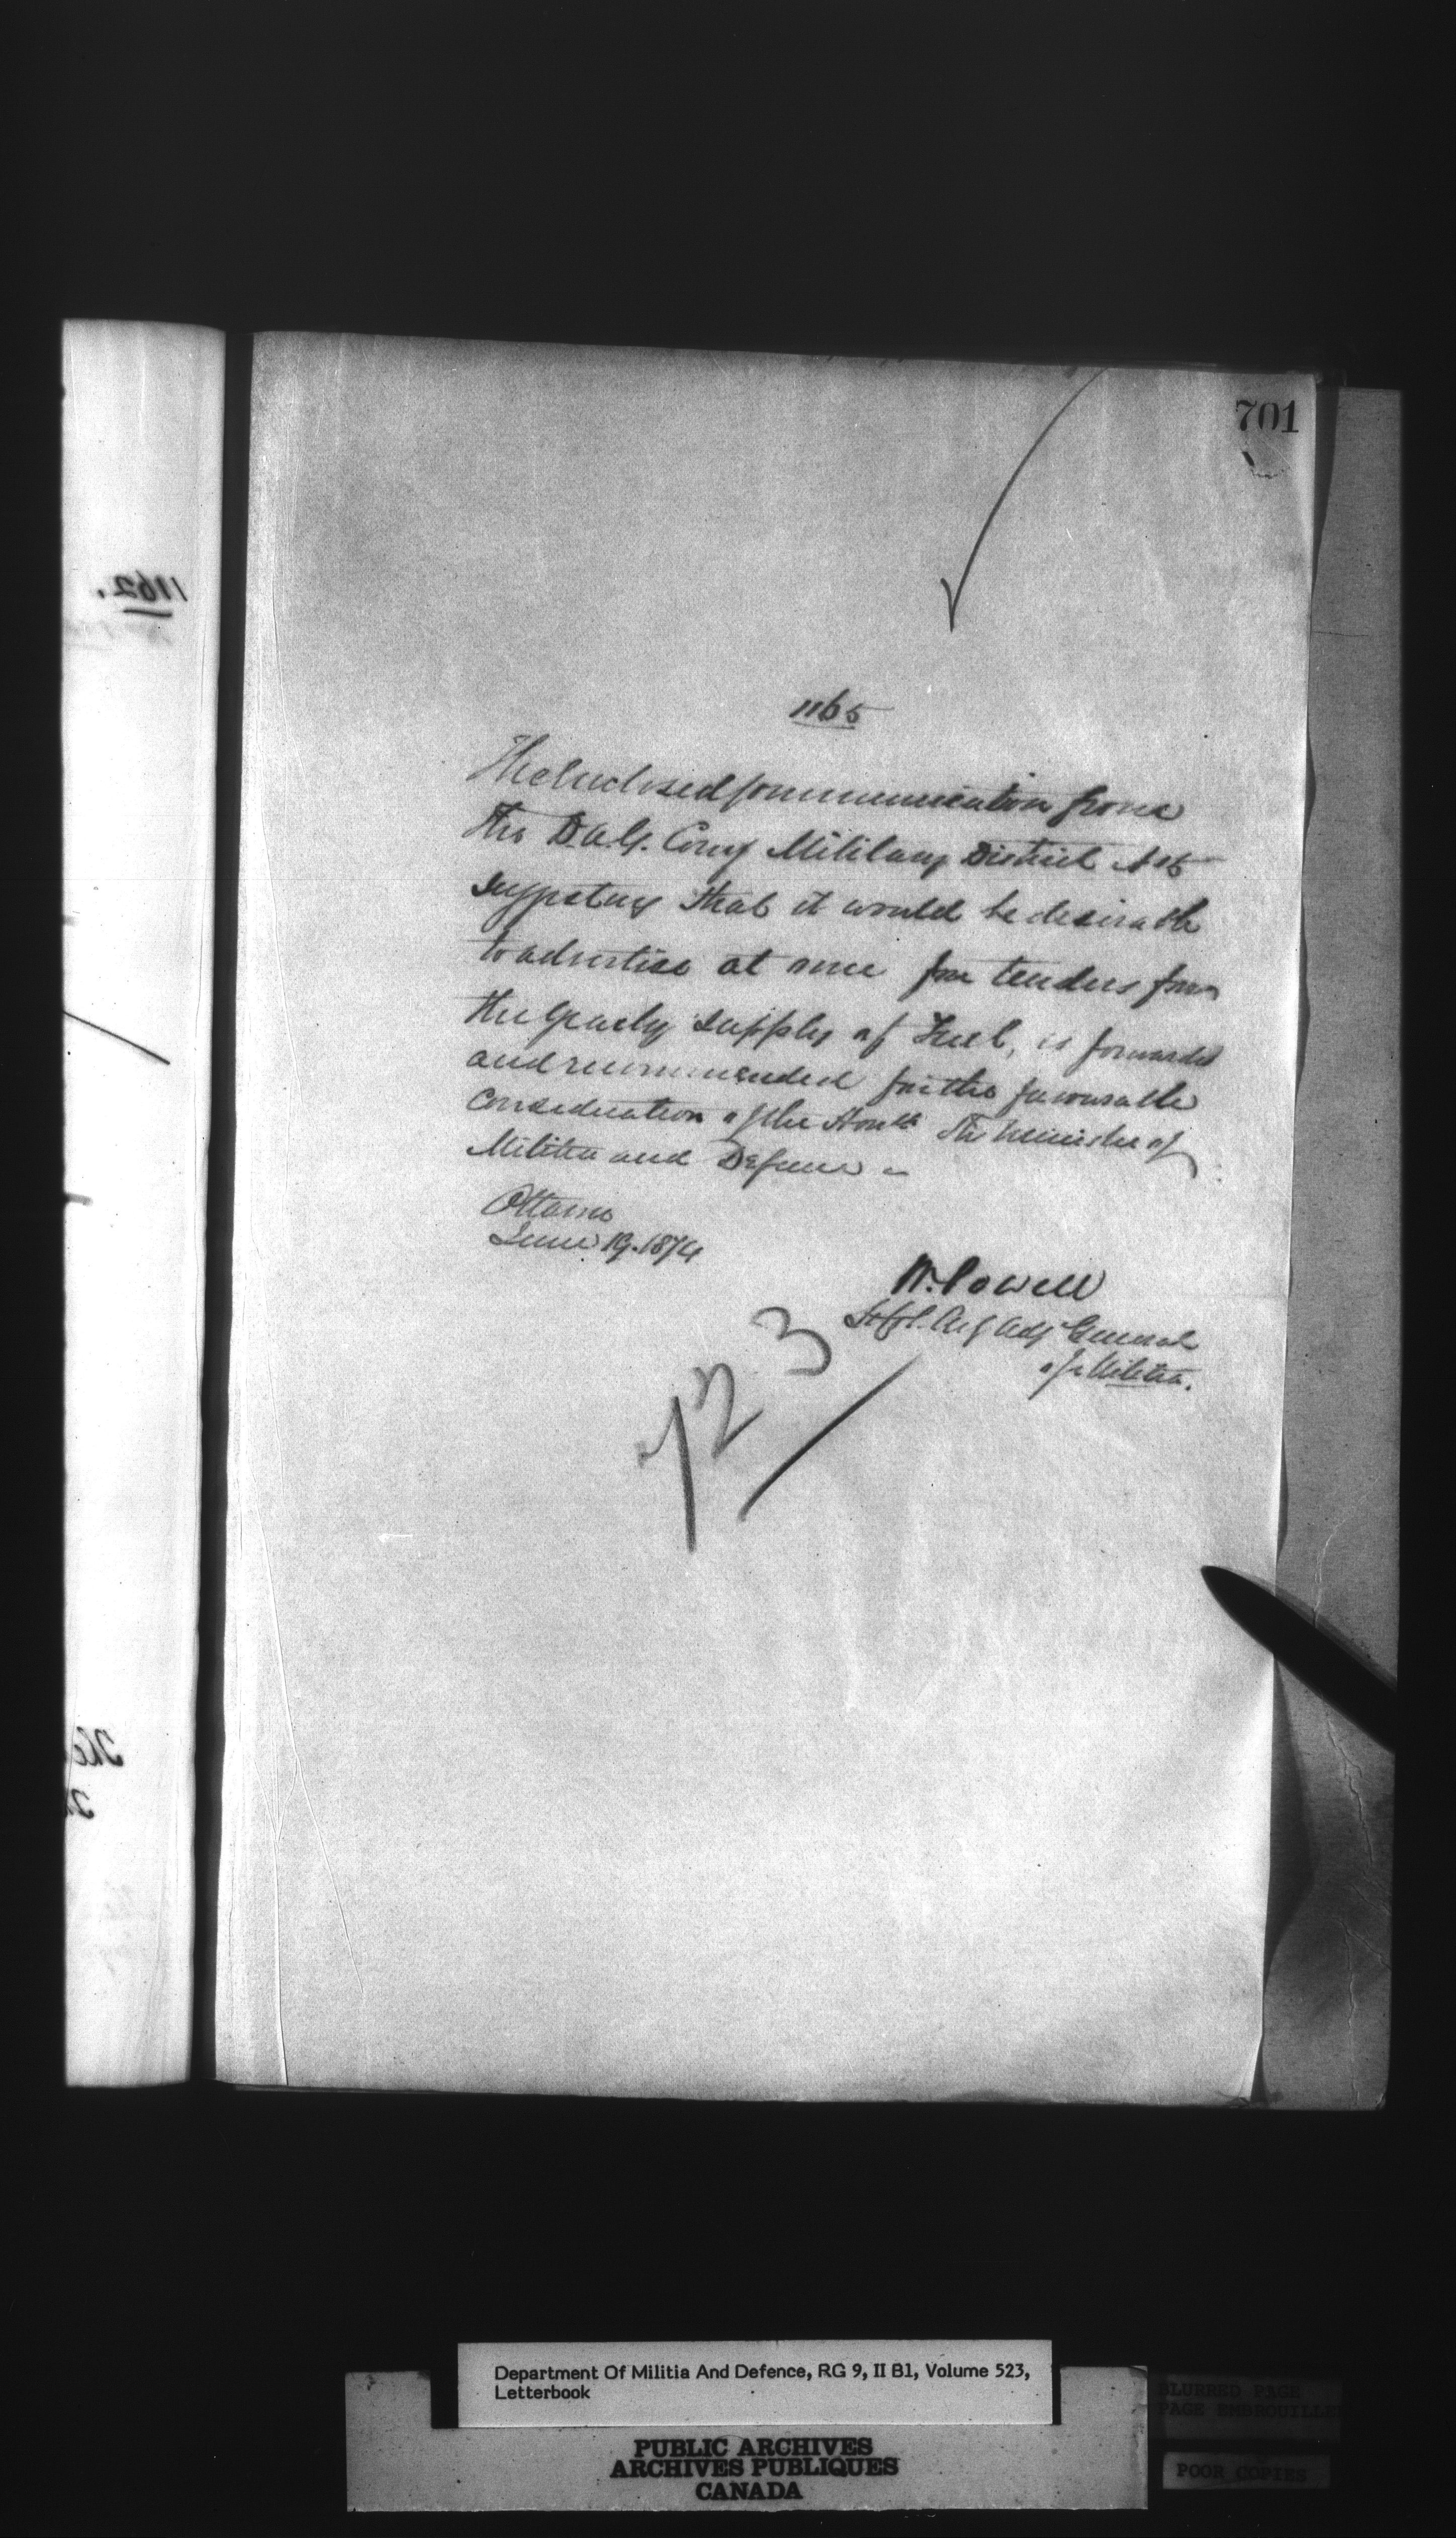 701
1162.
1165
The Enclosed Communication from
the D.A.G. Comg Military District No 5
suggesting that it would be desirable
to advertise at once for tenders for
the yearly supply of Fuel, is forwarded
and recommended for the favourable
consideration of the Honble The Minister of
Militia and Defence -
Ottawa
June 19. 1874
W. Powell
Lt Col. Actg Adj General
of Militia.
723
The
Department Of Militia And Defence, RG 9, II B1, Volume 523,
Letterbook
BLURRED PAGE
PAGE EMBROUILLE
PUBLIC ARCHIVES
ARCHIVES PUBLIQUES
CANADA
POOR COPIES